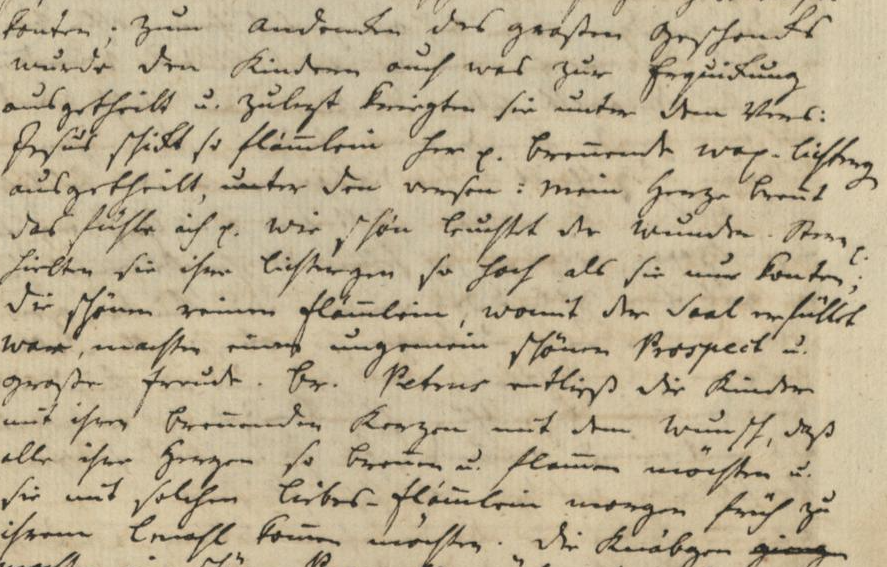 konten; zum andenken des großen Geschenks
wurde den Kindern auch was zur Erquikung
ausgetheilt u. zulezt kriegten sie unter dem Vers:
Jesus schikt so flämmlein her p. brennende wax-lichtergen
ausgetheilt, unter den versen: Mein Herze brennt
das fühle ich p. Wie schön leuchtet der Wunden-Stern p.
hielten sie ihre lichtergen so hoch als sie nur konten;
die schönen reinen flämmlein, womit der Saal erfüllet
war, machten einen ungemein schönen Prospect u.
große freude. Br. Petrus entließ die Kinder
mit ihren brennenden Kerzen mit dem Wunsch, daß
alle ihre Herzen so brennen u. flammen möchten u.
sie mit solchen liebes-flämmlein morgen früh zu
ihrem Emahl kommen möchten. Die Knäbgen gienge